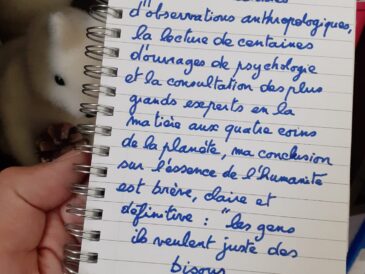 d'observations anthropologiques,
la lecture de centaines
d'ouvrages de psychologie
et la consultation des plus
grands experts en la
matière aux quatre coins
de la planète, ma conclusion
sur l'éssence de l'Humanité
est brève, claire et
définitive : "les gens
ils veulent juste des
bisous